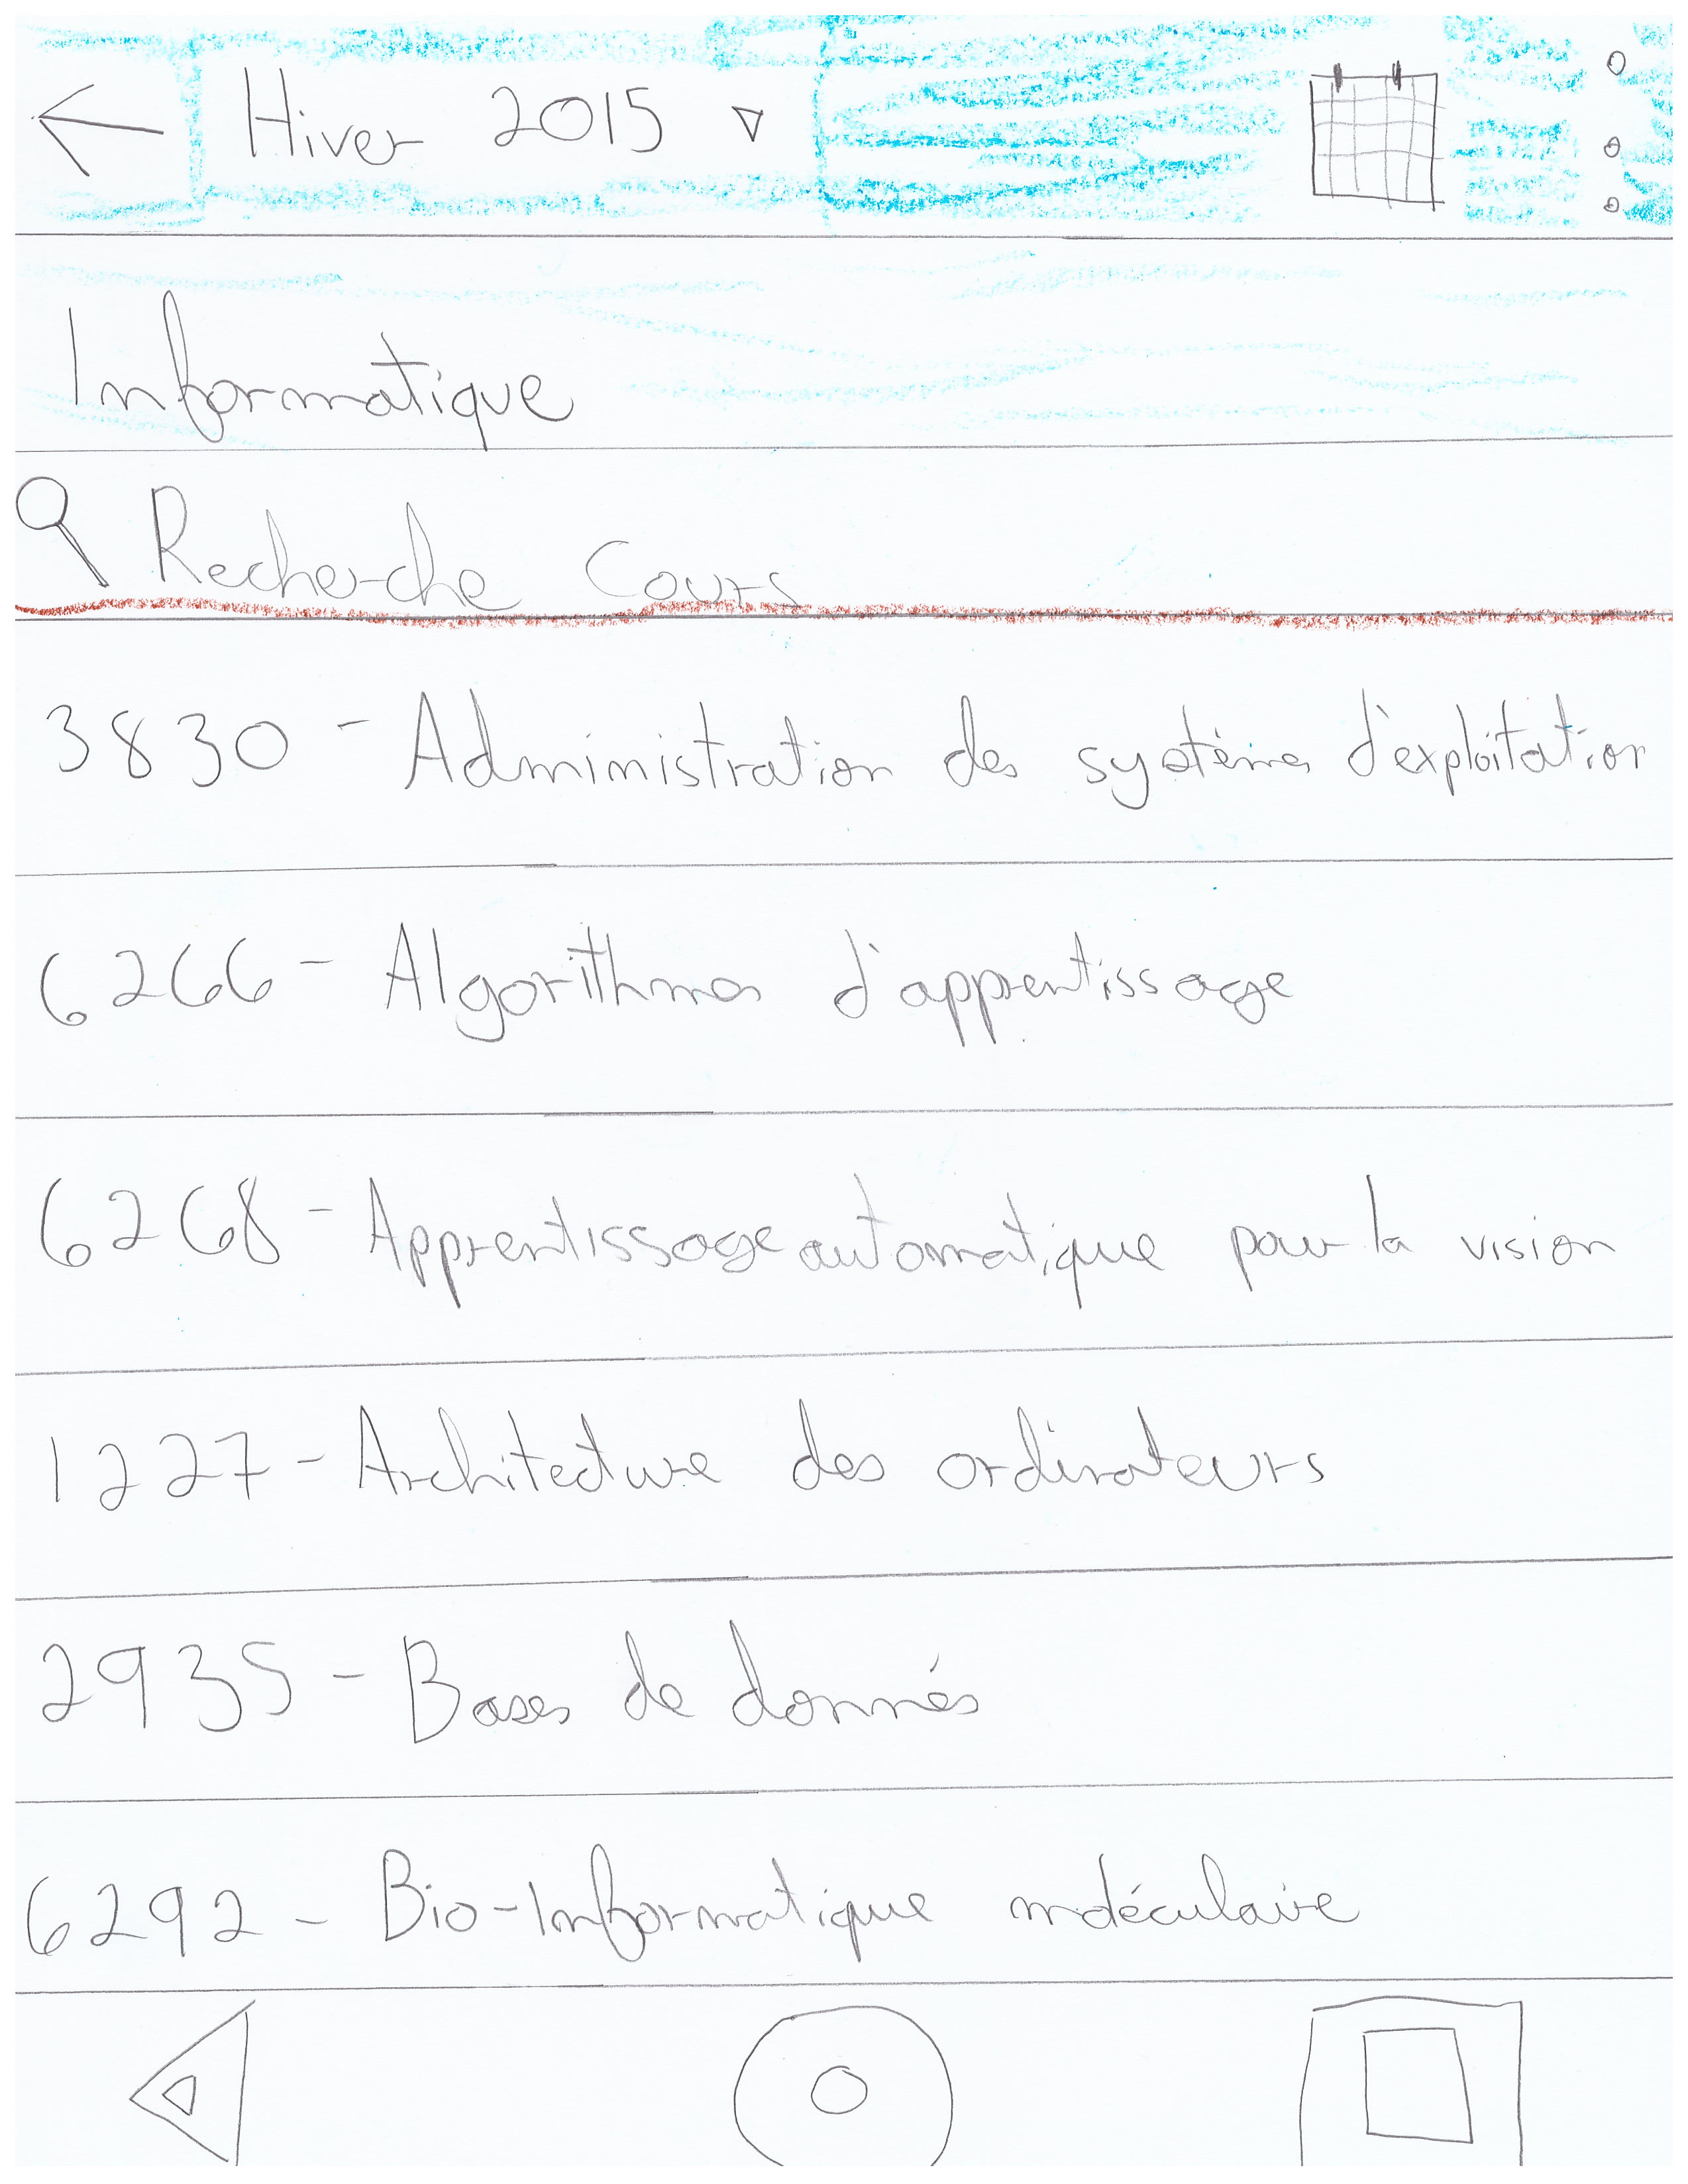 Hiver 2015
Informatique
Recherche Cours
3830 - Administration des systèmes d'exploitation
6266 - Algorithmes d'apprentissage
6268 - Apprentissage automatique pour la vision
1227 - Architecture des ordinateurs
2935 - Bases de donnés
6292 - Bio-Informatique moléculaire